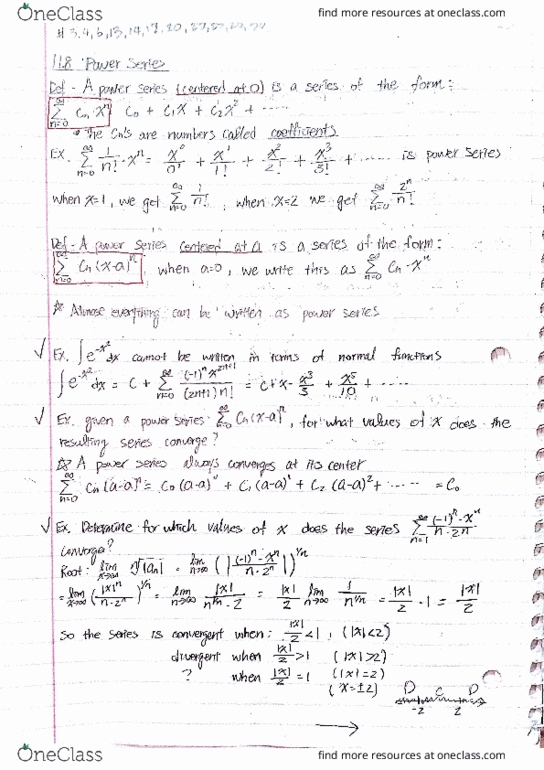 OneClass
find more resources at oneclass.com
# 3, 4, 6, 13, 14, 17, 20,
11.8 Power Series
Def - A power series (centered at 0) is a series of the form:
∑_{n=0}^{∞} Cn·xⁿ C₀ + C₁x + C₂x² + ·····
• the Cn's are numbers called coefficients
Ex. ∑_{n=0}^{∞} 1/n! · xⁿ = x⁰/0! + x¹/1! + x²/2! + x³/3! + ····· is power series
when x=1, we get ∑_{n=0}^{∞} 1/n! , when x=2 we get ∑_{n=0}^{∞} 2ⁿ/n!
Def - A power series centered at a is a series of the form:
∑_{n=0}^{∞} Cn(x-a)ⁿ, when a=0, we write this as ∑_{n=0}^{∞} Cn·xⁿ
☆ Almost everything can be written as power series
✓ Ex. ∫e^{-x²}dx cannot be written in terms of normal functions
∫e^{-x²}dx = C + ∑_{n=0}^{∞} (-1)ⁿ x^{2n+1}/(2n+1)n! = C + x - x³/3 + x⁵/10 + ·····
✓ Ex. given a power series ∑_{n=0}^{∞} Cn(x-a)ⁿ, for what values of x does the
resulting series converge?
☆ A power series always converges at its center
∑_{n=0}^{∞} Cn(a-a)ⁿ = C₀(a-a)⁰ + C₁(a-a)¹ + C₂(a-a)² + ····· = C₀
✓ Ex. Determine for which values of x does the series ∑_{n=1}^{∞} (-1)ⁿ·xⁿ/n·2ⁿ
converge?
Root: lim_{n→∞} ⁿ√|an| = lim_{n→∞} (|(-1)ⁿ·xⁿ/n·2ⁿ|)^{1/n}
= lim_{n→∞} (|x|ⁿ/n·2ⁿ)^{1/n} = lim_{n→∞} |x|/n^{1/n}·2 = |x|/2 lim_{n→∞} 1/n^{1/n} = |x|/2 · 1 = |x|/2
So the series is convergent when: |x|/2 < 1, (|x|<2)
divergent when |x|/2 > 1 (|x|>2)
? when |x|/2 = 1 (|x|=2)
(x=±2) D C D
-2 2
OneClass
find more resources at oneclass.com